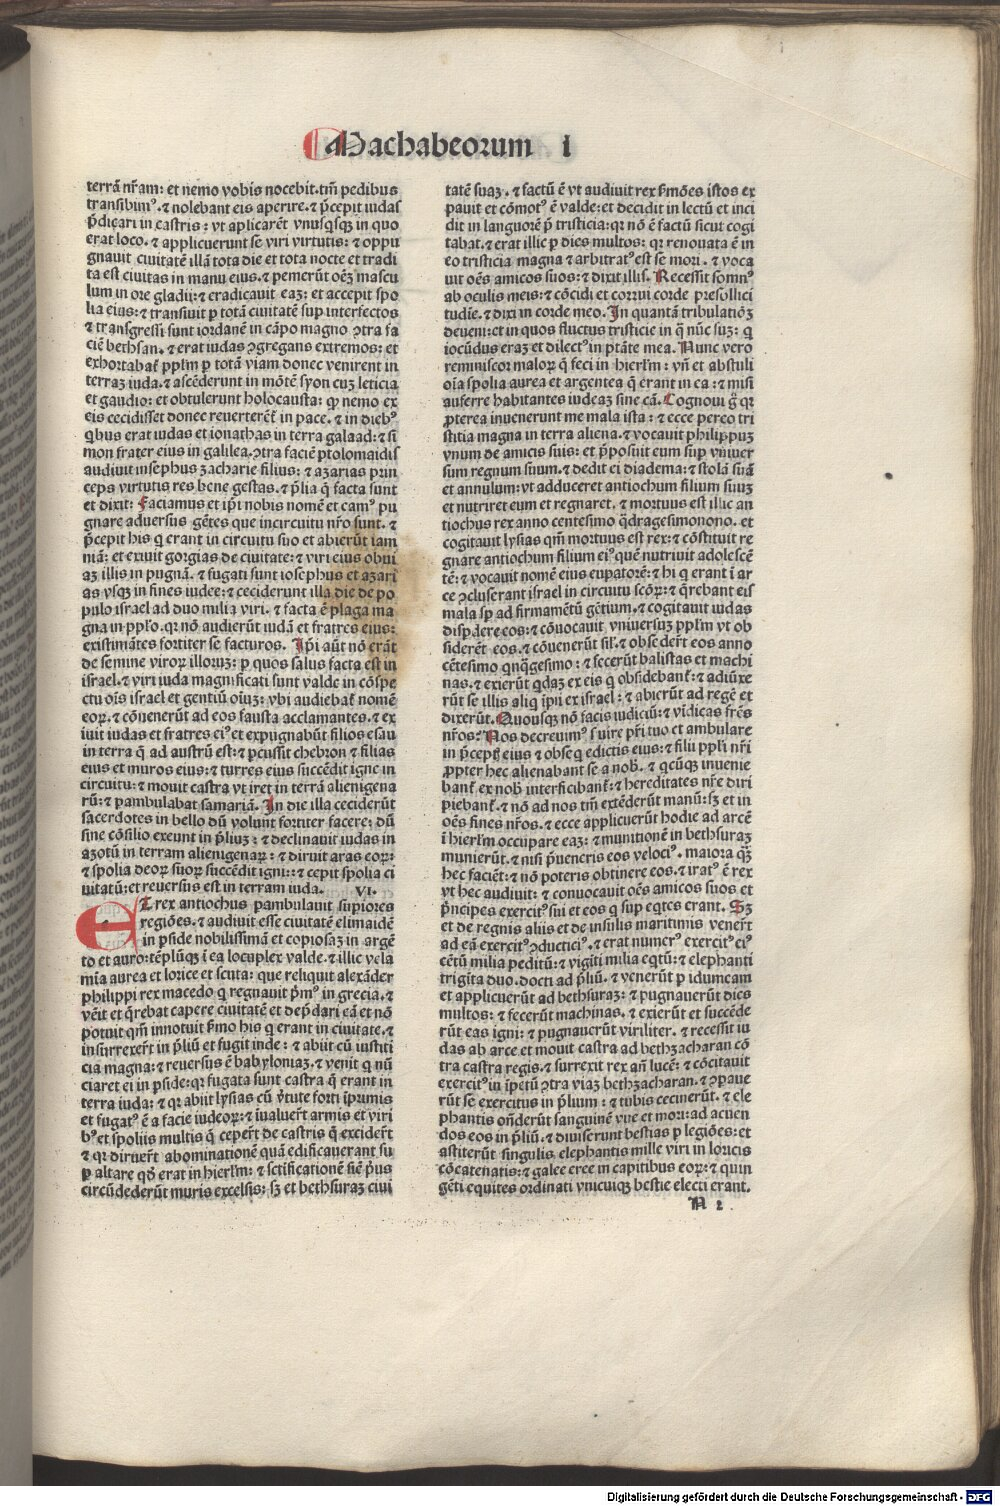 Machabeorum I
terrā nr̄am: et nemo vobis nocebit. tm̄ pedibus
transibimꝰ. ⁊ nolebant eis aperire. ⁊ p̄cepit iudas
p̄dicari in castris: vt aplicarēt vnusqsqꝫ in quo
erat loco. ⁊ applicuerunt se viri virtutis: ⁊ oppu
gnauit ciuitatē illā tota die et tota nocte et tradi
ta est ciuitas in manu eius. ⁊ pemerūt oēꝫ mascu
lum in ore gladii: ⁊ eradicauit eaꝫ: et accepit spo
lia eius: ⁊ transiuit p totā ciuitatē sup interfectos
⁊ transgressi sunt iordanē in cāpo magno ꝯtra fa
ciē bethsan. ⁊ erat iudas ꝯgregans extremos: et
exhortabat̄ pplm̄ p totā viam donec venirent in
terraꝫ iuda. ⁊ ascēderunt in mōtē syon cuꝫ leticia
et gaudio: et obtulerunt holocausta: ꝙ nemo ex
eis cecidisset donec reuerterēt̄ in pace. ⁊ in diebꝰ
qbus erat iudas et ionathas in terra galaad: ⁊ si
mon frater eius in galilea. ꝯtra faciē ptolomaidis
audiuit iosephus zacharie filius: ⁊ azarias prin
ceps virtutis res bene gestas. ⁊ p̄lia q̄ facta sunt
et dixit: Faciamus et ip̄i nobis nomē et eamꝰ pu
gnare aduersus gētes que incircuitu nr̄o sunt. ⁊
p̄cepit his q erant in circuitu suo et abierūt iam
niā: et exiuit gorgias de ciuitate: ⁊ viri eius obui
aꝫ illis in pugnā. ⁊ fugati sunt iosephus et azari
as vsqꝫ in fines iudee: ⁊ ceciderunt illa die de po
pulo israel ad duo milia viri. ⁊ facta ē plaga ma
gna in ppl̄o. qꝛ nō audierūt iudā et fratres eius:
existimātes fortiter se facturos. Ip̄i aūt nō erāt
de semine viroꝝ illoruꝫ: p quos salus facta est in
israel. ⁊ viri iuda magnificati sunt valde in cōspe
ctu oīs israel et gentiū oīuꝫ: vbi audiebat̄ nomē
eoꝝ. ⁊ cōuenerūt ad eos fausta acclamantes. ⁊ ex
iuit iudas et fratres eiꝰ: et expugnabūt filios esau
in terra q̄ ad austrū est: ⁊ pcussit chebron ⁊ filias
eius et muros eius: ⁊ turres eius succēdit igne in
circuitu: ⁊ mouit castra vt iret in terrā alienigena
rū: ⁊ pambulabat samariā. In die illa ceciderūt
sacerdotes in bello dū volunt fortiter facere: dū
sine cōsilio exeunt in p̄liuꝫ: ⁊ declinauit iudas in
azotū in terram alienigenaꝝ: ⁊ diruit aras eoꝝ:
⁊ spolia deoꝝ suoꝝ succēdit igni: ⁊ cepit spolia ci
uitatū: et reuersus est in terram iuda. VI.
ET rex antiochus pambulauit supiores
regiōes. ⁊ audiuit esse ciuitatē elimaidē
in pside nobilissimā et copiosaꝫ in argē
to et auro: tēplūqꝫ ī ea locuplex valde. ⁊ illic vela
mīa aurea et lorice et scuta: que reliquit alexāder
philippi rex macedo q regnauit p̄mꝰ in grecia. ⁊
vēit et q̄rebat capere ciuitatē et dep̄dari eā et nō
potuit qm̄ innotuit s̄mo his q erant in ciuitate. ⁊
insurrexer̄t in p̄liū et fugit inde: ⁊ abiit cū iusticii
cia magna: ⁊ reuersus ē babyloniaꝫ. ⁊ venit q nū
ciaret ei in pside: qꝛ fugata sunt castra q̄ erant in
terra iuda: ⁊ qꝛ abiit lysias cū v̄tute forti īprimis
et fugatꝰ ē a facie iudeoꝝ: ⁊ iualuer̄t armis et viri
bꝰ et spoliis multis q̄ ceper̄t de castris q̄ exciderūt
⁊ qꝛ diruer̄t abominationē quā edificauerant su
p altare qd̄ erat in hierl̄m: ⁊ sctificationē sic̄ p̄us
circūdederūt muris excelsis: sꝫ et bethsuraꝫ ciui
tatē suaꝫ. ⁊ factū ē vt audiuit rex s̄mōes istos ex
pauit et cōmotꝰ ē valde: et decidit in lectū et inci
dit in languorē p̄ tristicia: qꝛ nō ē factū sicut cogi
tabat. ⁊ erat illic p dies multos: qꝛ renouata ē in
eo tristicia magna ⁊ arbitratꝰ est se mori. ⁊ voca
uit oēs amicos suos: ⁊ dixit illis. Recessit somnꝰ
ab oculis meis: ⁊ cōcidi et corrui corde pre sollici
tudīe. ⁊ dixi in corde meo. In quantā tribulatiōꝫ
deueni: et in quos fluctus tristicie in q̄ nūc suꝫ: q
iocūdus eraꝫ et dilectꝰ in ptāte mea. Nunc vero
reminiscor maloꝝ q̄ feci in hierl̄m: vn̄ et abstuli
oīa spolia aurea et argentea q̄ erant in ea: ⁊ misi
auferre habitantes iudeaꝫ sine cā. Cognoui g̃ qꝛ
ꝓpterea inuenerunt me mala ista: ⁊ ecce pereo tri
stitia magna in terra aliena. ⁊ vocauit philippuꝫ
vnum de amicis suis: et p̄posuit eum sup vniuer
sum regnum suum. ⁊ dedit ei diadema: ⁊ stolā suā
et annulum: vt adduceret antiochum filium suuꝫ
et nutriret eum et regnaret. ⁊ mortuus est illic an
tiochus rex anno centesimo q̄dragesimonono. et
cogitauit lysias qm̄ mortuus est rex: ⁊ cōstituit re
gnare antiochum filium eiꝰ quē nutriuit adolescē
tē: ⁊ vocauit nomē eius eupatorē: ⁊ hi q erant ī ar
ce ꝯcluserant israel in circuitu scōꝝ: ⁊ q̄rebant eis
mala sp̄ ad firmamētū gētium. ⁊ cogitauit iudas
dispdere eos: ⁊ cōuocauit vniuersuꝫ pplm̄ vt ob
siderēt eos. ⁊ cōuenerūt sil̄. ⁊ obseder̄t eos anno
cētesimo qnqgesimo: ⁊ fecerūt balistas et machi
nas. ⁊ exierūt qdaꝫ ex eis q obsidebant̄: ⁊ adiūxe
rūt se illis aliq īpii ex israel: ⁊ abierūt ad regē et
dixerūt. Quousqꝫ nō facis iudiciū: ⁊ vīdicas fr̄es
nr̄os? Nos decreuimꝰ s̄uire pr̄i tuo et ambulare
in p̄cept̄ eius ⁊ obseq edictis eius: ⁊ filii ppl̄i nr̄i
ꝓpter hec alienabant se a nob̄. ⁊ qcūqꝫ inuenie
bant̄ ex nob̄ interficibant̄: ⁊ hereditates nr̄e diri
piebant̄. ⁊ nō ad nos tm̄ extēderūt manū: sꝫ et in
oēs fines nr̄os. ⁊ ecce applicuerūt hodie ad arcē
ī hierl̄m occupare eaꝫ: ⁊ munitionē in bethsuraꝫ
munierūt. ⁊ nisi p̄uencris eos velociꝰ. maiora qꝫ
hec faciēt: ⁊ nō poteris obtinere eos. ⁊ iratꝰ ē rex
vt hec audiuit: ⁊ conuocauit oēs amicos suos et
p̄ncipes exercitꝰ sui et eos q sup eqtes erant. Sꝫ
et de regnis aliis et de insulis maritimis vener̄t
ad eā exercitꝰ ꝯducticiꝰ. ⁊ erat numerꝰ exercitꝰ eiꝰ
cētū milia peditū: ⁊ vigīti milia eqtū: ⁊ elephanti
trigīta duo. docti ad p̄liū. ⁊ venerūt p idumeam
et applicuerūt ad bethsuraꝫ: ⁊ pugnauerūt dies
multos: ⁊ fecerūt machinas. ⁊ exierūt et succēde
rūt eas igni: ⁊ pugnauerūt viriliter. ⁊ recessit iu
das ab arce et mouit castra ad bethzacharan cō
tra castra regis. ⁊ surrexit rex an̄ lucē: ⁊ cōcitauit
exercitꝰ in īpetū ꝯtra viaꝫ bethzacharan. ⁊ ꝯpaue
rūt se exercitus in p̄lium: ⁊ tubis cecinerūt. ⁊ ele
phantis on̄derūt sanguinē vue et mori: ad acuen
dos eos in p̄liū. ⁊ diuiserunt bestias p legiōes: et
astiterūt singulis elephantis mille viri in loricis
cōcatenatis: ⁊ galee eree in capitibus eoꝝ: ⁊ quin
gēti equites ordinati vnicuiqꝫ bestie electi erant.
N 2
Digitalisierung gefördert durch die Deutsche Forschungsgemeinschaft - DFG